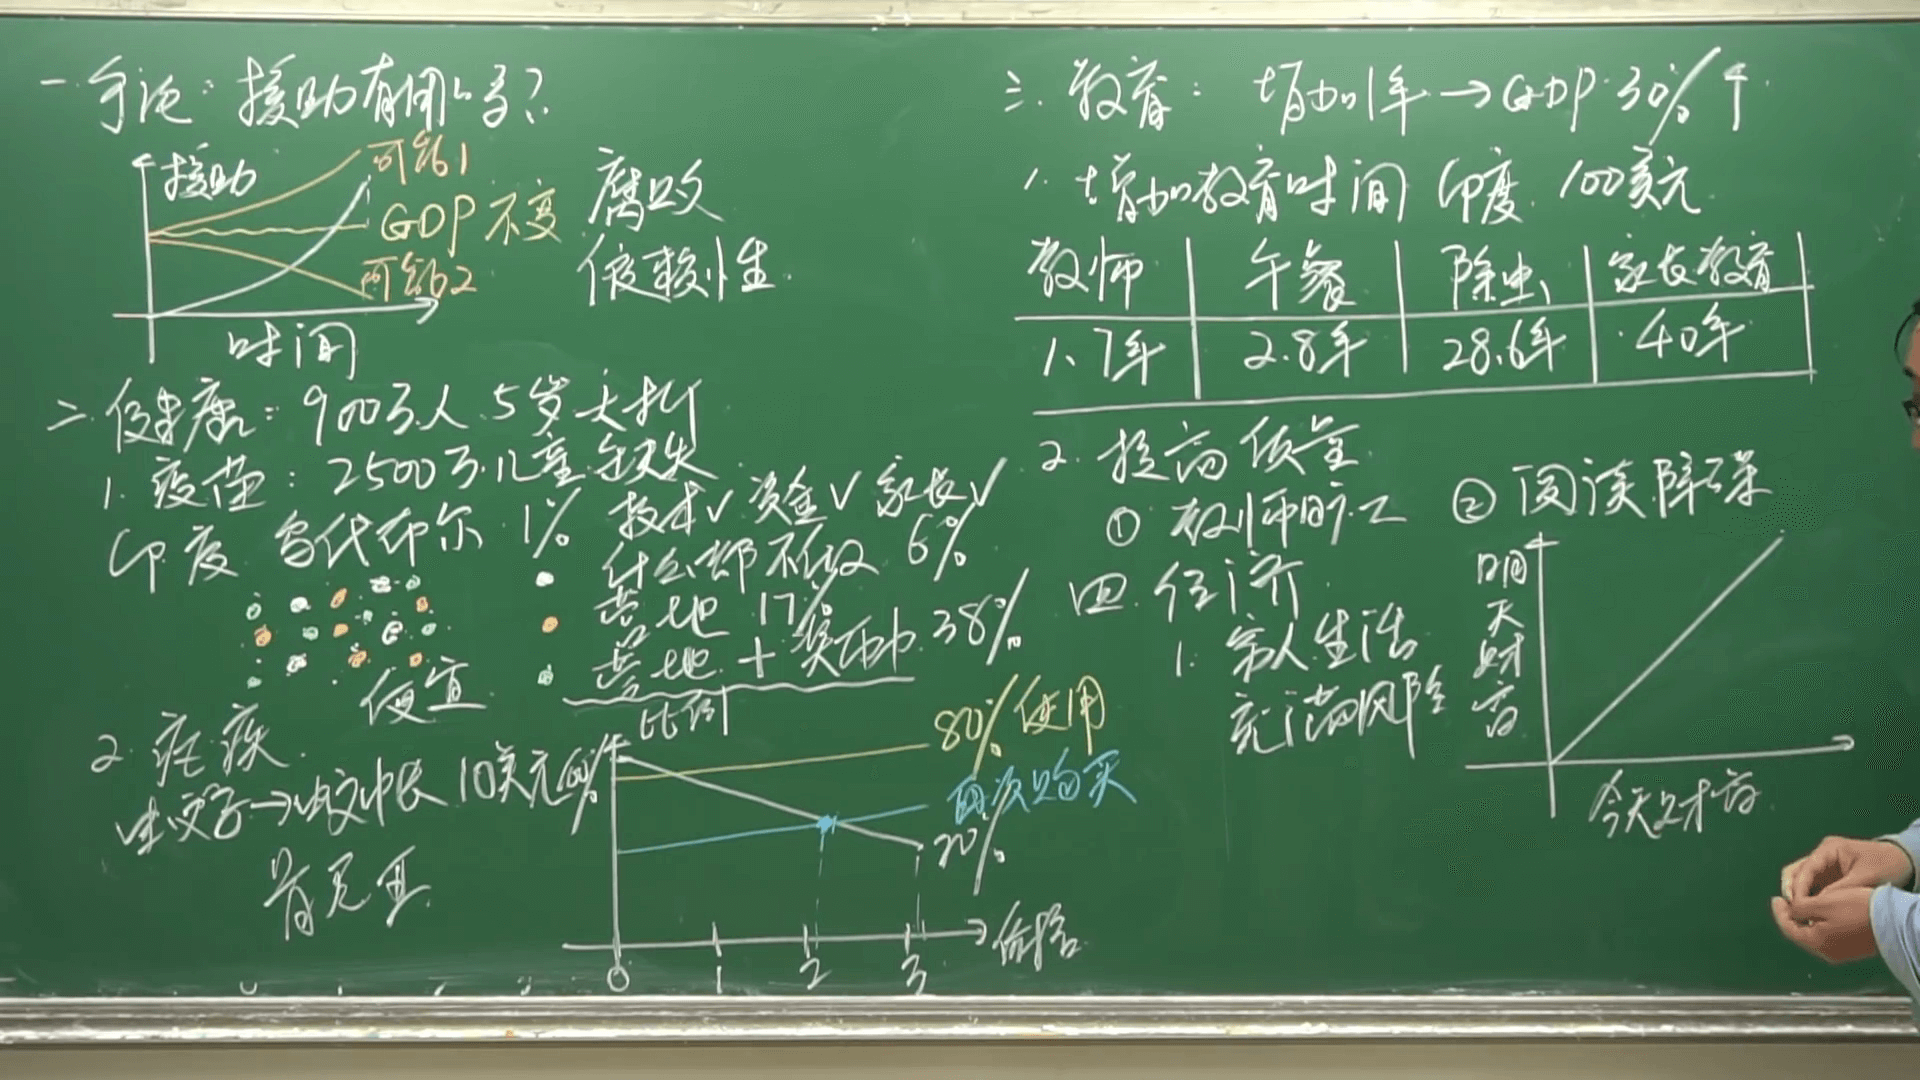 一. 争论: 援助有用吗?
援助
可能1
GDP不变
可能2
时间
腐败
依赖性
二. 健康: 900万人 5岁夭折
1. 疫苗: 2500万儿童缺失
印度 乌代布尔 1%
便宜
技术√ 资金√ 家长√
什么都不做 6%
营地 17%
营地 + 奖励 38%
2. 疟疾
蚊子→蚊帐 10美元
肯尼亚
比例
80%使用
再次购买
20%
0 1 2 3
价格
三. 教育: 增加1年→GDP 30%↑
1. 增加教育时间 印度 100美元
教师 午餐 除虫 家长教育
1.7年 2.8年 28.6年 40年
2. 提高质量
① 教师旷工
② 阅读障碍
四. 经济
1. 穷人生活
充满风险
明天财富
今天财富